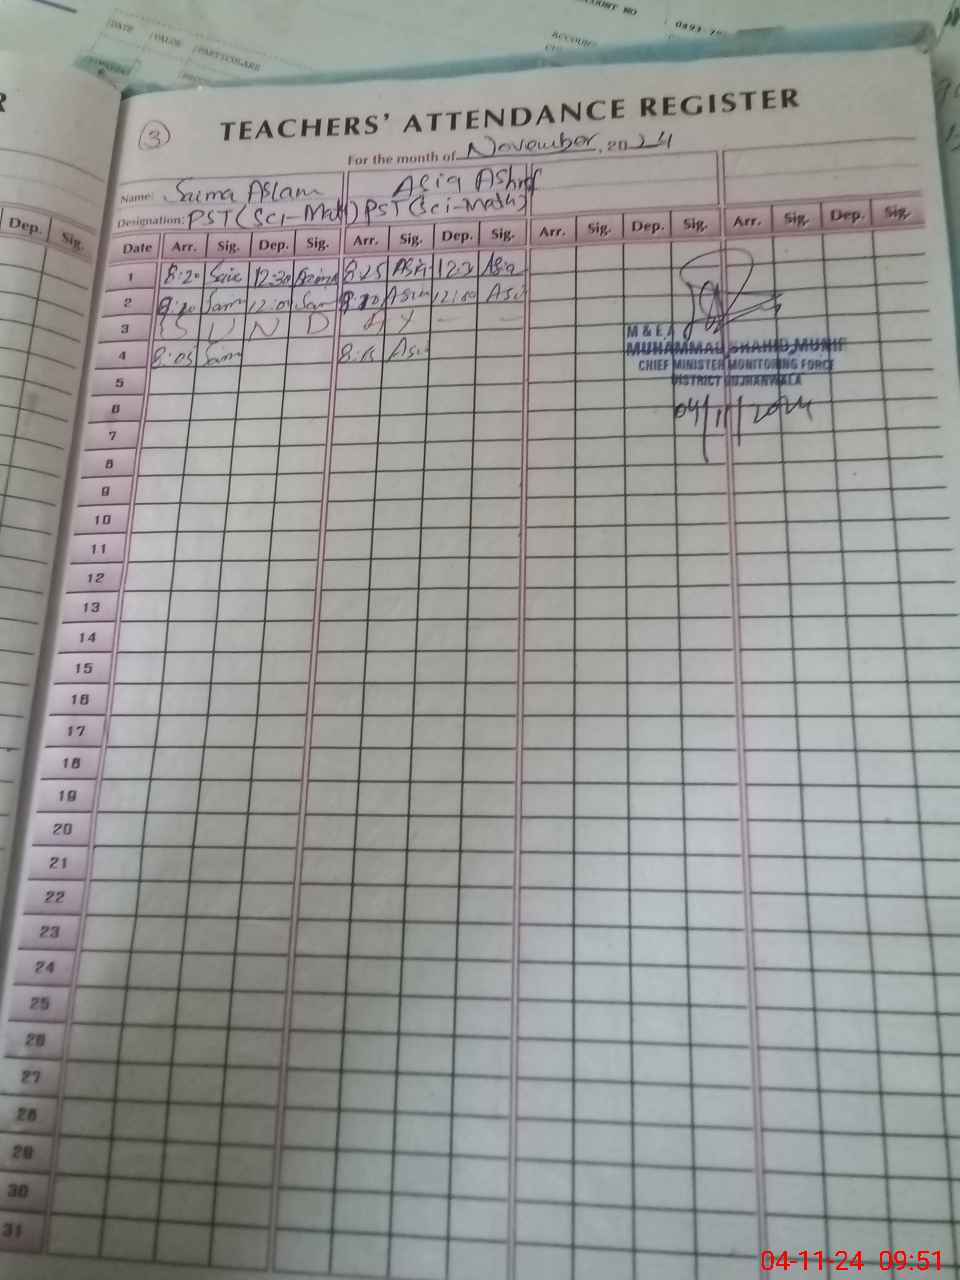 ACCOUNT NO : 0493
DATE VALUE PARTICULARS
R
3
TEACHERS' ATTENDANCE REGISTER
For the month of November, 2024
Name: Saima Aslam Asia Ashraf
Designation: PST (Sci-Math) PST (Sci-Math)
Dep. Sig.
Date Arr. Sig. Dep. Sig. Arr. Sig. Dep. Sig. Arr. Sig. Dep. Sig. Arr. Sig. Dep. Sig.
1 8:20 12:30 8:25 Asia Asia
2 12:00 Asia 12:00 Asia
3 S U N D A Y — —
4 8:05 Saim 8:15 Asia
M & E A
MUHAMMAD SHAHID MUNIF
CHIEF MINISTER MONITORING FORCE
DISTRICT GUJRANWALA
04/11/2024
5
6
7
8
9
10
11
12
13
14
15
16
17
18
19
20
21
22
23
24
25
26
27
28
29
30
31
04-11-24 09:51